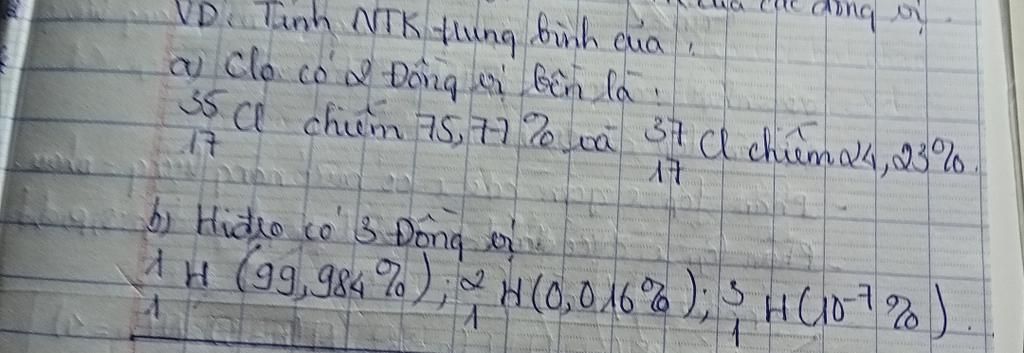 của các đồng vị.
VD: Tính NTK trung bình của:
a) Clo có 2 Đồng vị bền là:
³⁵₁₇Cl chiếm 75,77% và ³⁷₁₇Cl chiếm 24,23%.
b) Hiđro có 3 Đồng vị
¹₁H (99,984%); ²₁H (0,016%); ³₁H (10⁻⁷%).